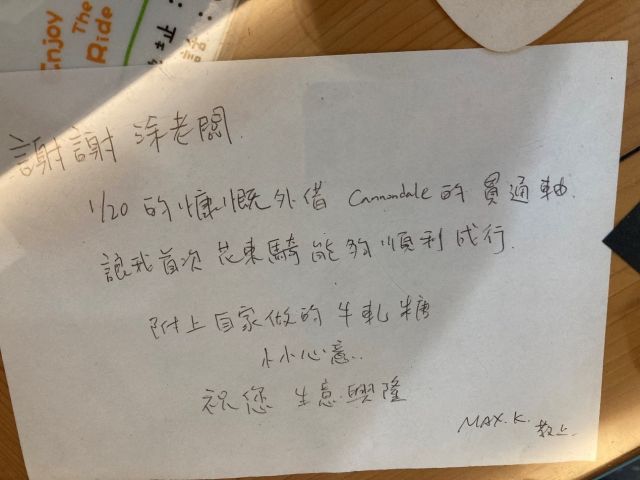 Enjoy
The
Ride
謝謝 涂老闆.
1/20 的慷慨外借 Cannondale 的 貫通軸.
讓我首次 花東騎能夠順利成行.
附上自家做的 牛軋糖
小小心意..
祝您 生意興隆
MAX. K. 敬上